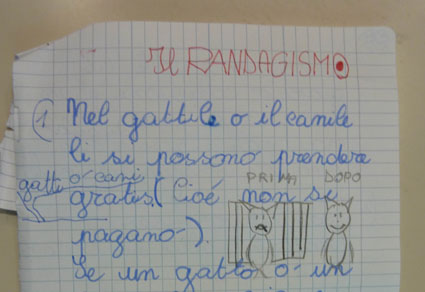 Il RANDAGISMO
1 Nel gattile o il canile
li si possono prendere
gatti o cani
gratis (Cioé non si
PRIMA DOPO
pagano).
Se un gatto o un